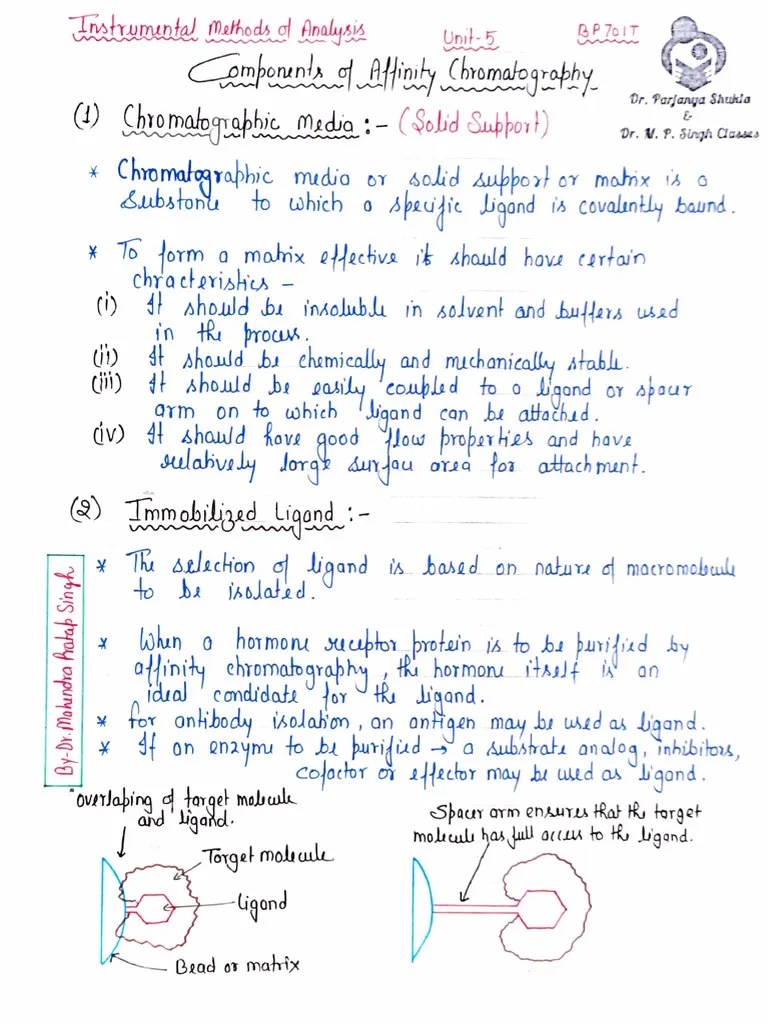 Instrumental Methods of Analysis
Unit-5
BP701T
Components of Affinity Chromatography
Dr. Parjanya Shukla
&
Dr. M. P. Singh Classes
(1) Chromatographic Media :- (Solid Support)
* Chromatographic media or solid support or matrix is a
substance to which a specific ligand is covalently bound.
* To form a matrix effective it should have certain
chracteristics -
(i) It should be insoluble in solvent and buffers used
in the process.
(ii) It should be chemically and mechanically stable.
(iii) It should be easily coupled to a ligand or spacer
arm on to which ligand can be attached.
(iv) It should have good flow properties and have
relatively large surface area for attachment.
(2) Immobilized Ligand :-
* The selection of ligand is based on nature of macromolecule
to be isolated.
* When a hormone receptor protein is to be purified by
affinity chromatography, the hormone itself is an
ideal candidate for the ligand.
* for antibody isolation, an antigen may be used as ligand.
* If an enzyme to be purified → a substrate analog, inhibitors,
cofactor or effector may be used as ligand.
By-Dr. Mahendra Pratap Singh
overlaping of target molecule
and ligand.
Target molecule
Ligand
Bead or matrix
Spacer arm ensures that the target
molecule has full access to the ligand.